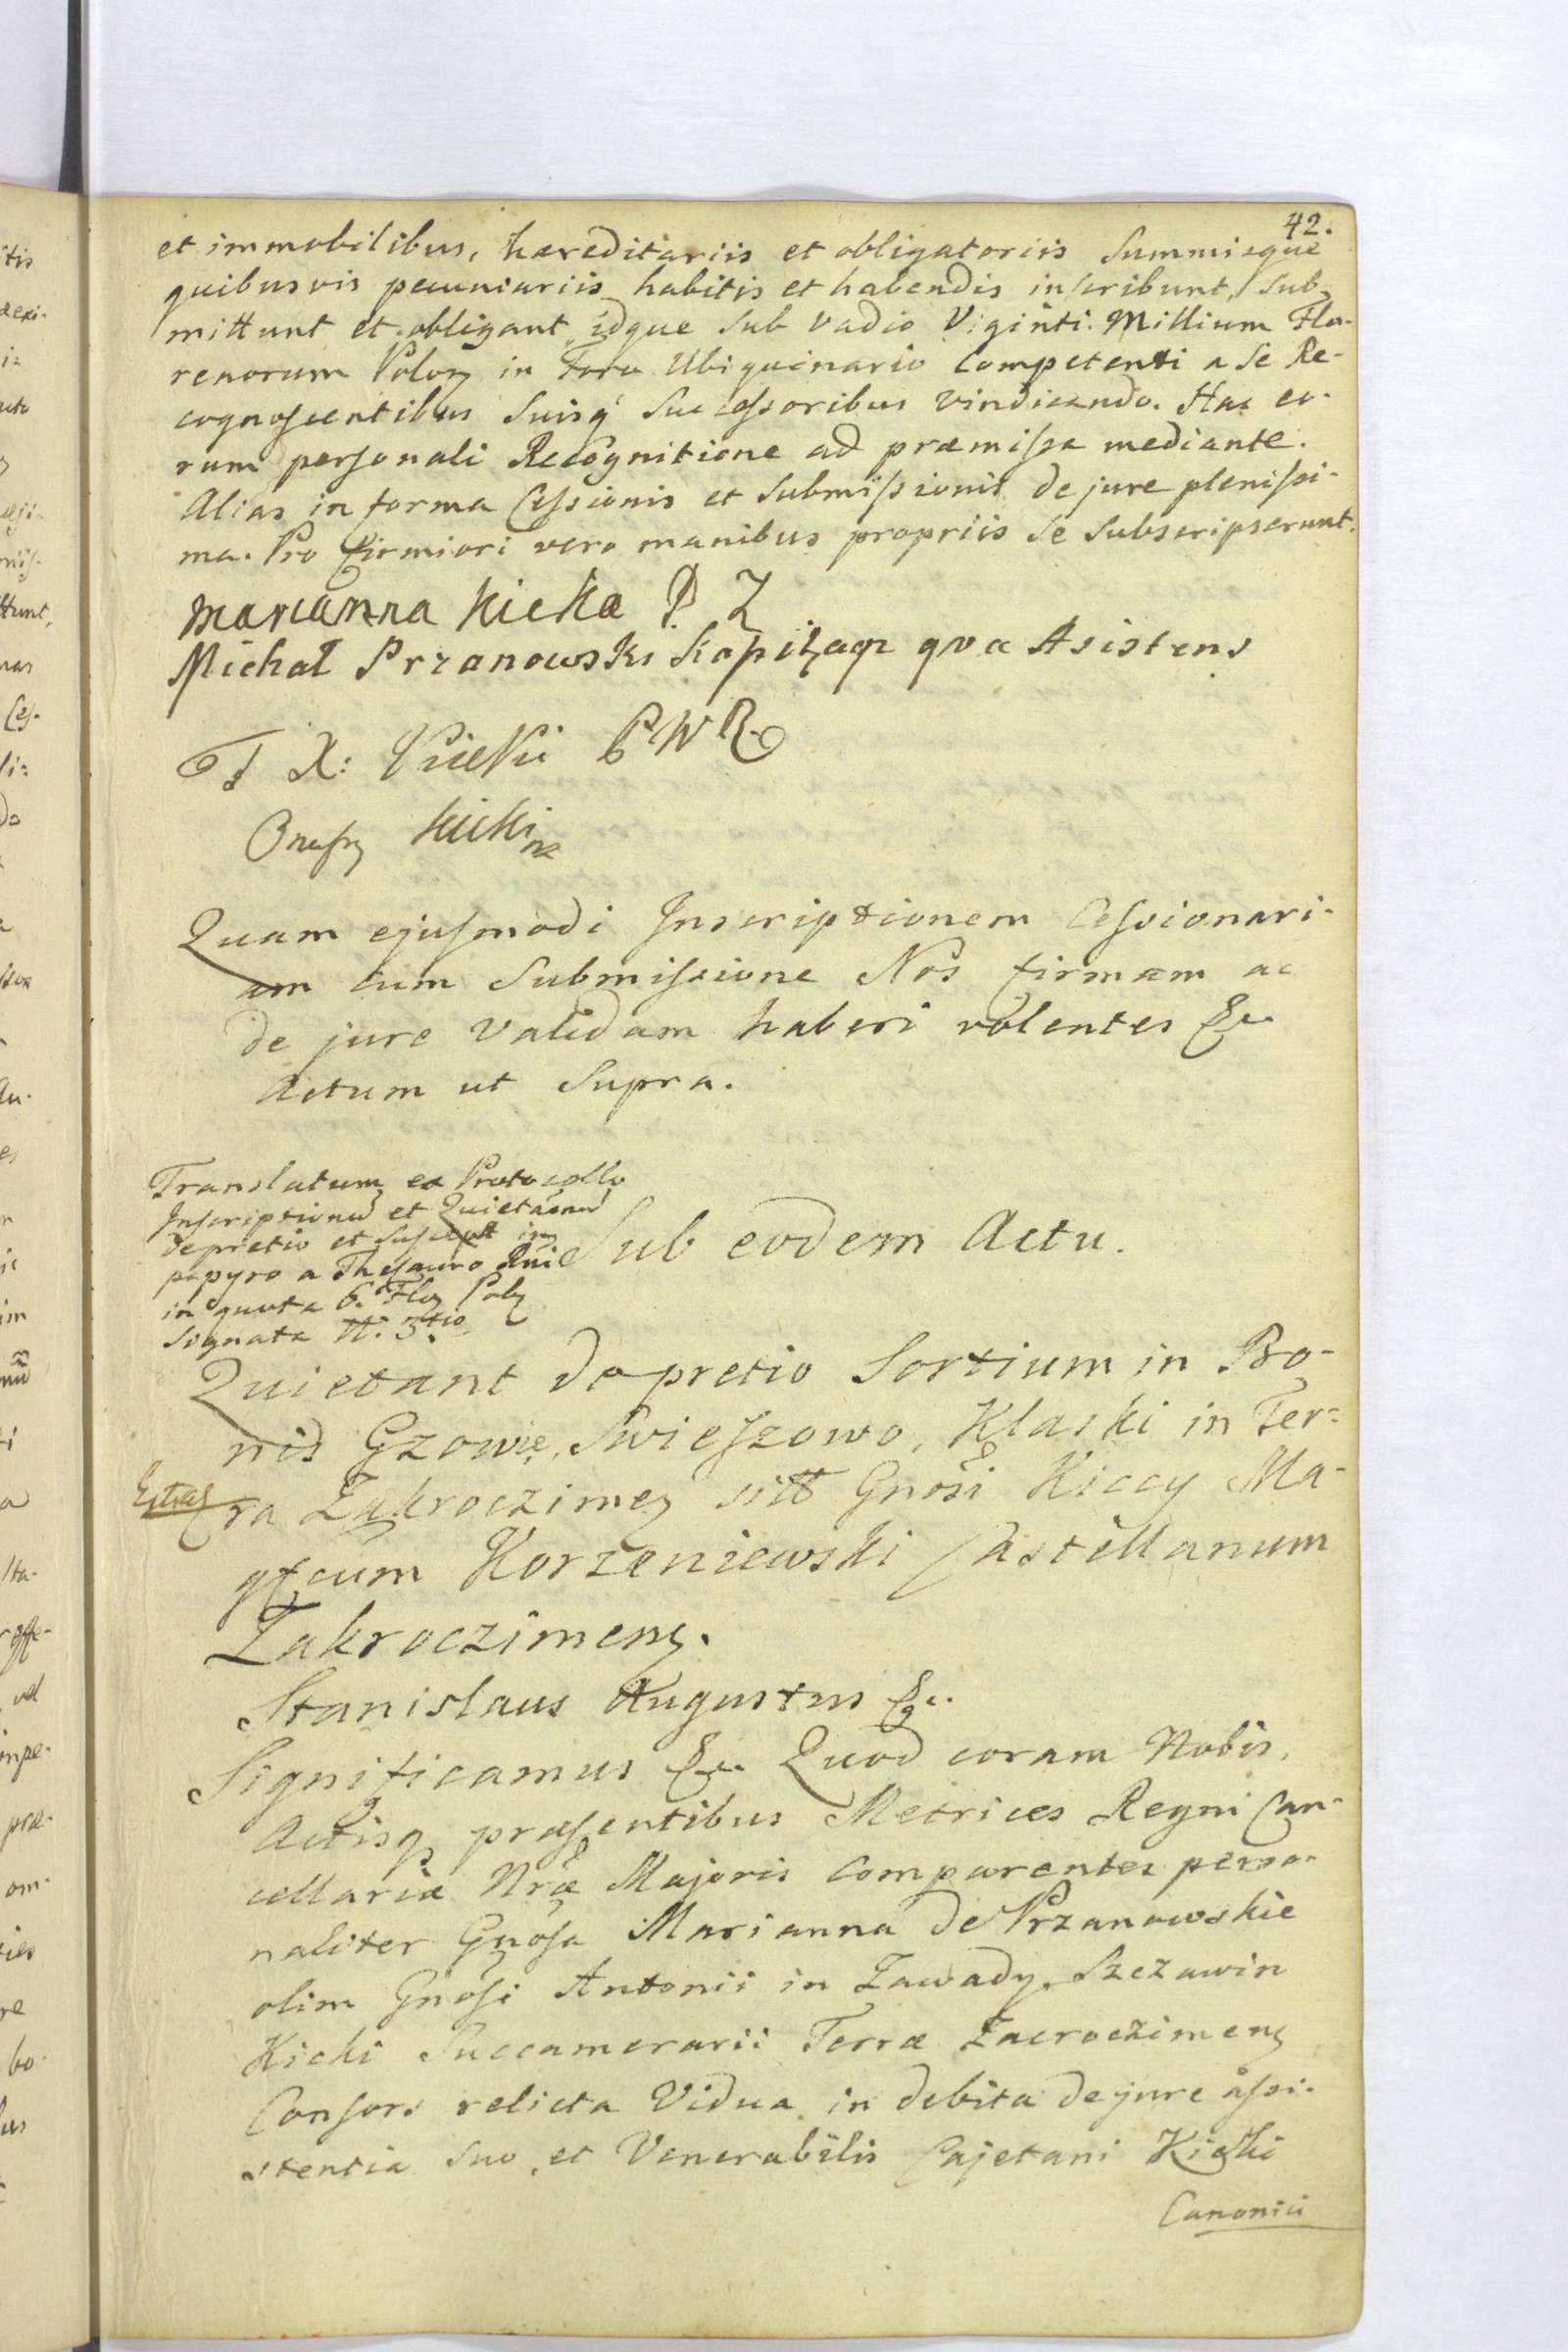 42.
et immobilibus, hæreditariis et obligatoriis Summisque
quibusvis pecuniariis habitis et habendis inscribunt, Sub-
mittunt et obligant, idque Sub Vadio Viginti Millium Flo-
renorum Polon in Foro Ubiquinario Competenti a Se Re-
cognoscentibus Suisq Successoribus vindicando. Hac eo-
rum personali Recognitione ad præmissa mediante.
Alias in forma Cessionis et Submissionis de jure plenissi-
ma. Pro firmiori vero manibus propriis Se Subscripserunt.
Marianna Kicka P. Z
Michał Przanowski Kapitaą qva Asistens
X: Kicki P W R
Onufry Kicki
Quam ejusmodi Inscriptionem Cessionari-
am cum Submissione Nos firmam ac
de jure Validam haberi volentes &c.
Actum ut Supra.
Translatum ex Protocollo
Inscriptionũ et Quietaõnũ
de pretio et Suscept in
papyro a Thesauro Rni
in quota 6. Flor Pol
Signata N. 3tio
Sub eodem Actu.
Quietant de pretio Sortium in Bo-
nis Gzowie, Swieszowo, Klaski in Ter-
Extras
ra Zakroczimen sitt Gnosi Kiccy Ma-
gfcum Korzeniewski Castellanum
Zakroczimens.
Stanislaus Augustus &c.
Significamus &c. Quod coram Nobis,
Actisq præsentibus Metrices Regni Can-
cellariæ Nræ Majoris Comparentes perso-
naliter Gnosa Marianna de Przanowskie
olim Gnosi Antonii in Zawady, Szczawin
Kicki Succamerarii Terræ Zacroczimens
Consors relicta Vidua in debita de jure assi-
stentia suo, et Venerabilis Cajetani Kicki
Canonici